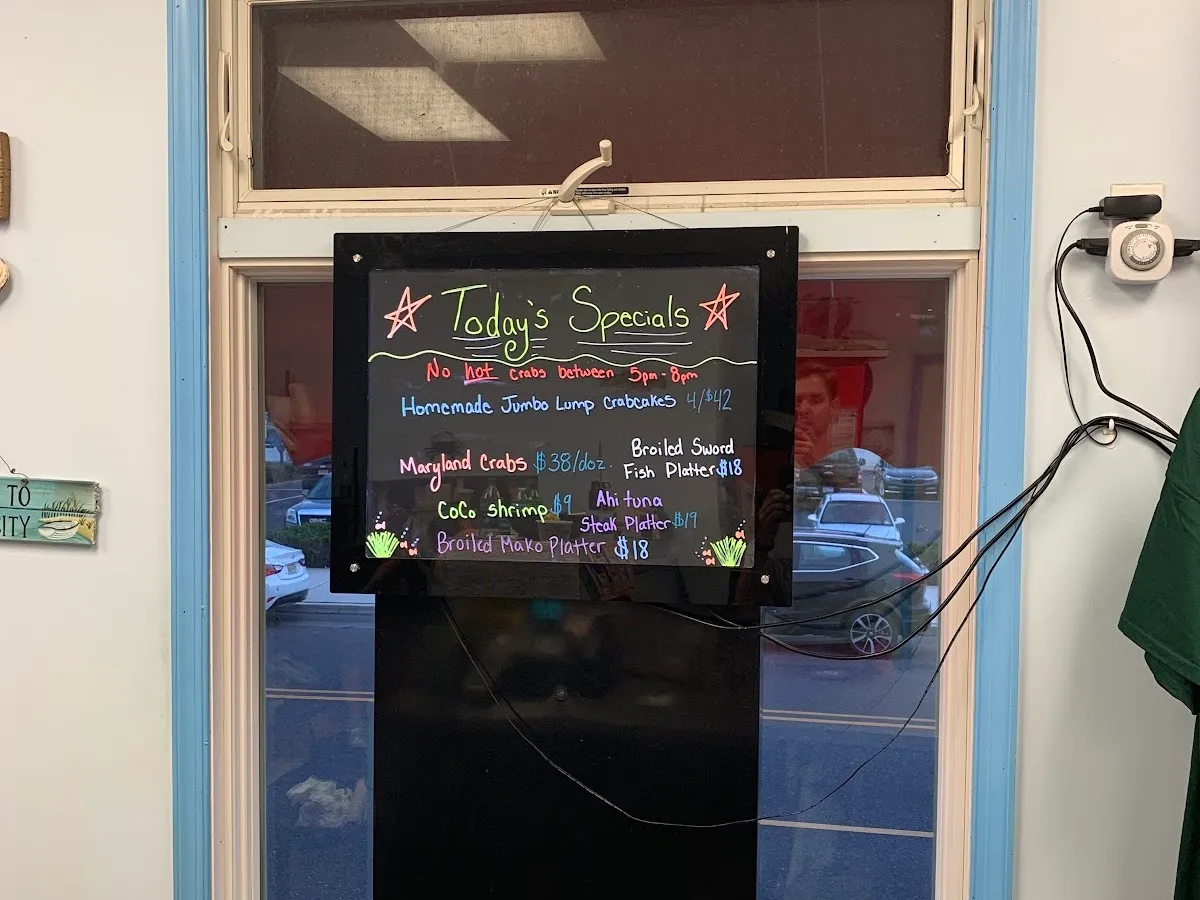 Today's Specials
No hot crabs between 5pm-8pm
Homemade Jumbo Lump Crabcakes 4/$42
Maryland Crabs $38/doz.
Broiled Sword
Fish Platter $18
CoCo shrimp $9
Ahi tuna
Steak Platter $19
Broiled Mako Platter $18
TO